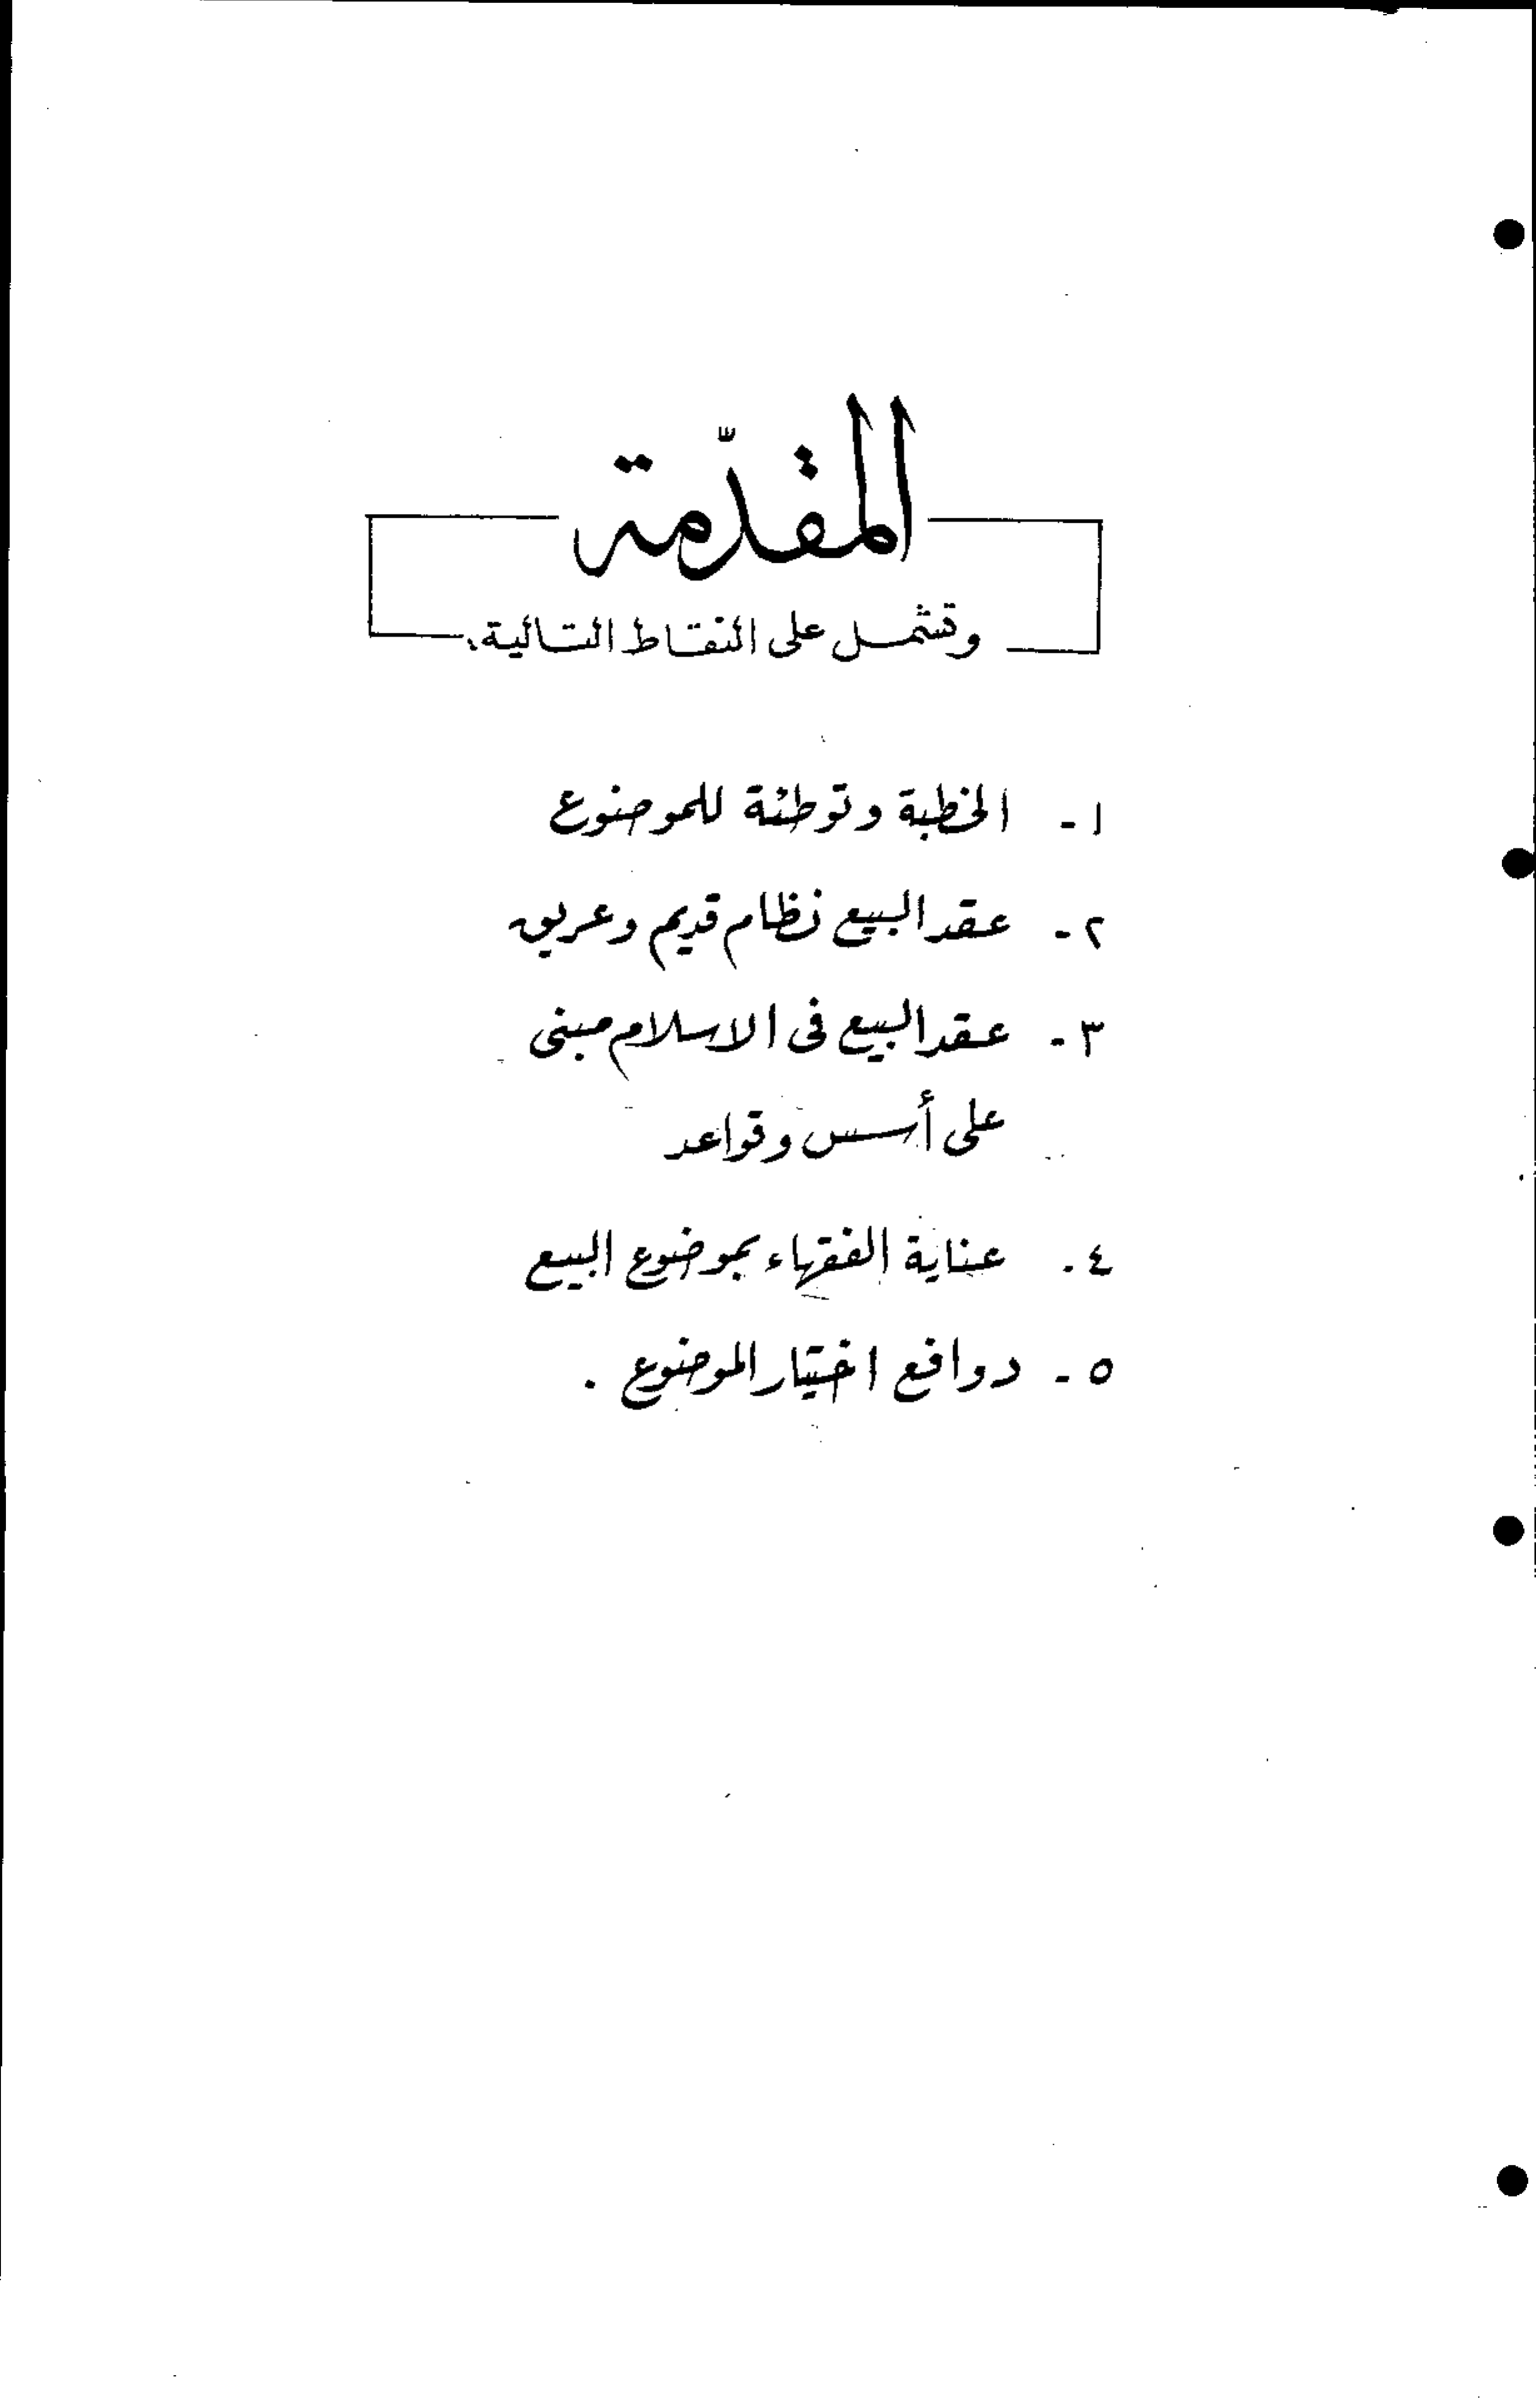 المقدّمة
وتشمل على النقاط التالية.
١- الخطبة وتوطئة للموضوع
٢- عقد البيع نظام قديم وعريق
٣- عقد البيع فى الاسلام مبنى
على أسس وقواعد
٤- عناية الفقهاء بموضوع البيع
٥- دوافع اختيار الموضوع .